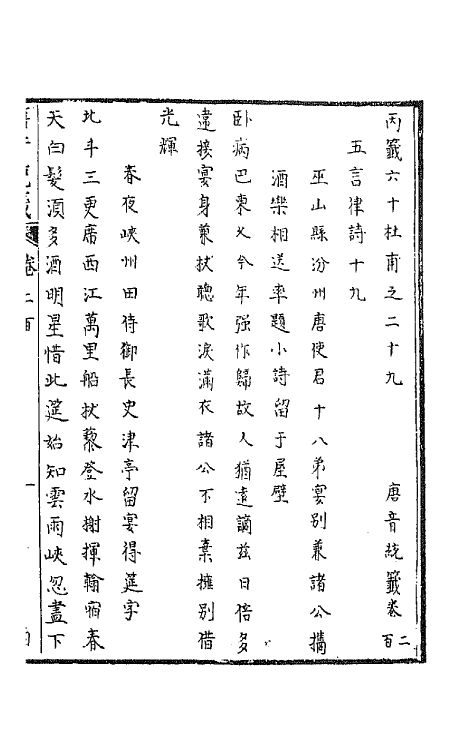 丙籤六十杜甫之二十九　唐音統籤卷二百
五言律詩十九
巫山縣汾州唐使君十八弟宴別兼諸公攜
酒樂相送率題小詩留于屋壁
卧病巴東久今年强作歸故人猶遠謫兹日倍多
違接宴身兼杖聽歌淚滿衣諸公不相棄擁别借
光輝
春夜峽州田侍御長史津亭留宴得筵字
北斗三更席西江萬里船杖藜登水榭揮翰宿春
天白髮須多酒明星惜此筵始知雲雨峽忽盡下
卷二百
一